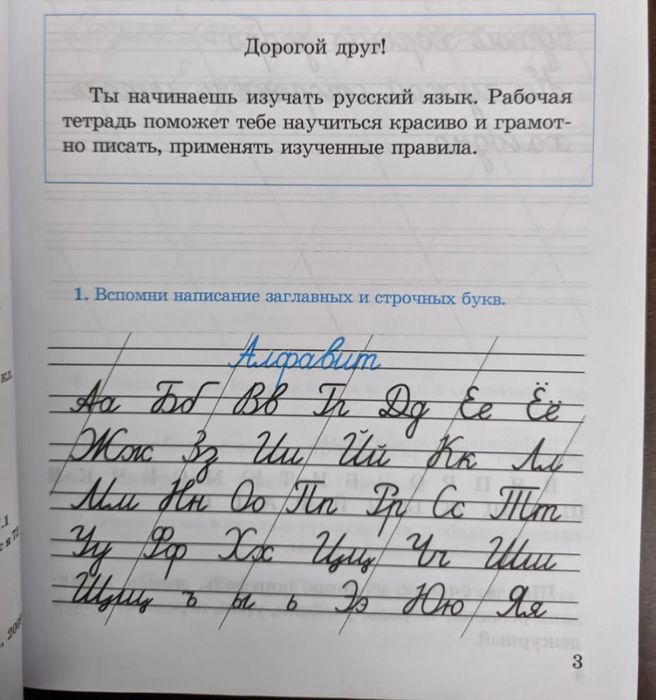 Дорогой друг!
Ты начинаешь изучать русский язык. Рабочая
тетрадь поможет тебе научиться красиво и грамот-
но писать, применять изученные правила.
1. Вспомни написание заглавных и строчных букв.
Алфавит
Аа Бб Вв Гг Дд Ее Ёё
Жж Зз Ии Йй Кк Лл
Мм Нн Оо Пп Рр Сс Тт
Уу Фф Хх Цц Чч Шш
Щщ ъ ы ь Ээ Юю Яя
3